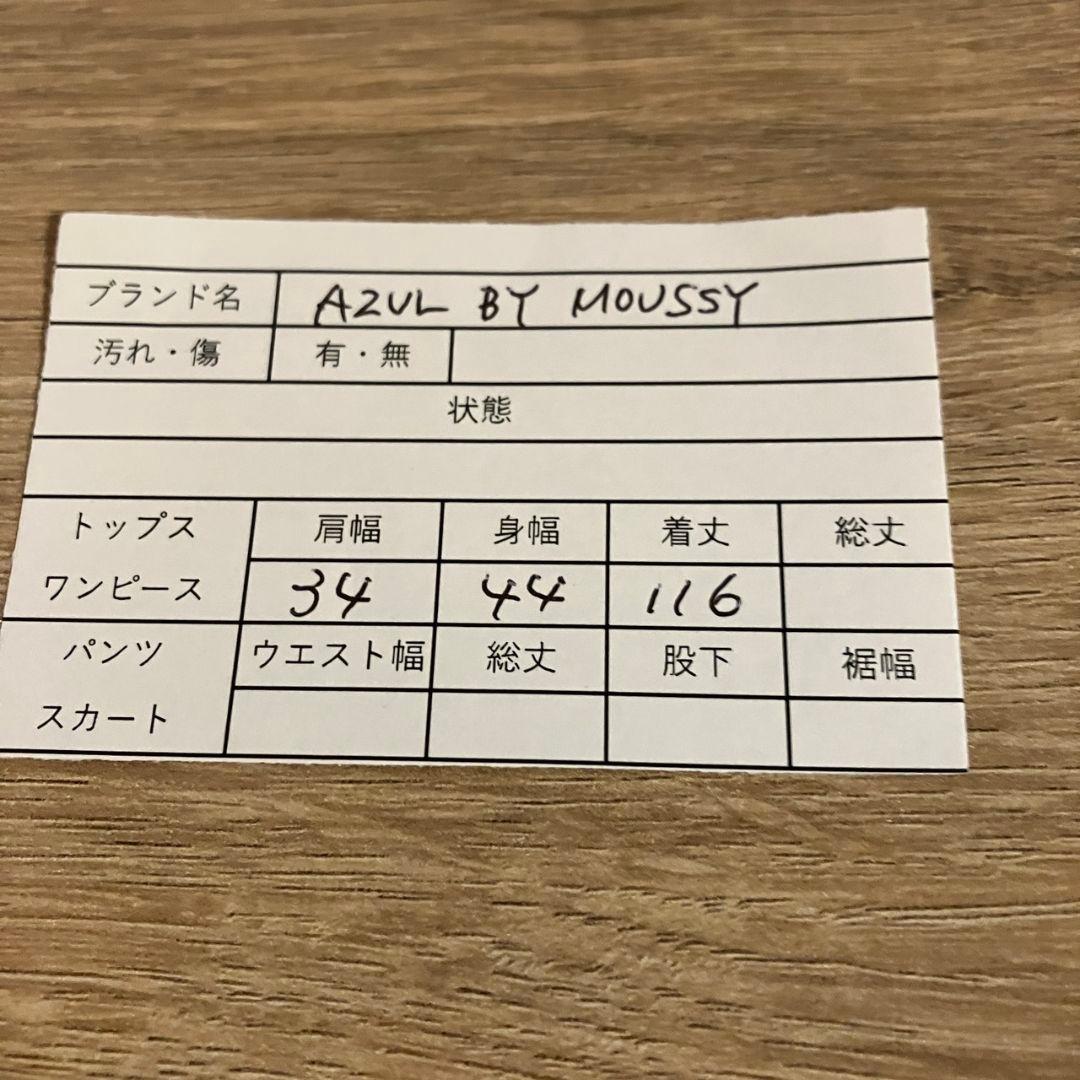 ブランド名 AZUL BY MOUSSY
汚れ・傷 有・無
状態
トップス 肩幅 身幅 着丈 総丈
ワンピース 34 44 116
パンツ ウエスト幅 総丈 股下 裾幅
スカート